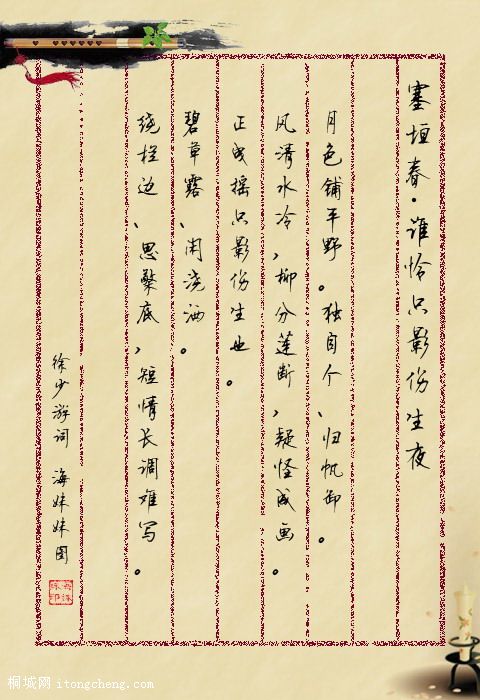 塞垣春·谁怜只影伤生夜
月色铺平野。独自个、归帆卸。
风清水冷，柳分莲断，疑怪成画。
正曳摇只影伤生也。
碧草露、闲浇洒。
绕栏边、思檠底，短情长调难写。
徐少游词 海妹妹图
桐城网 itongcheng.com